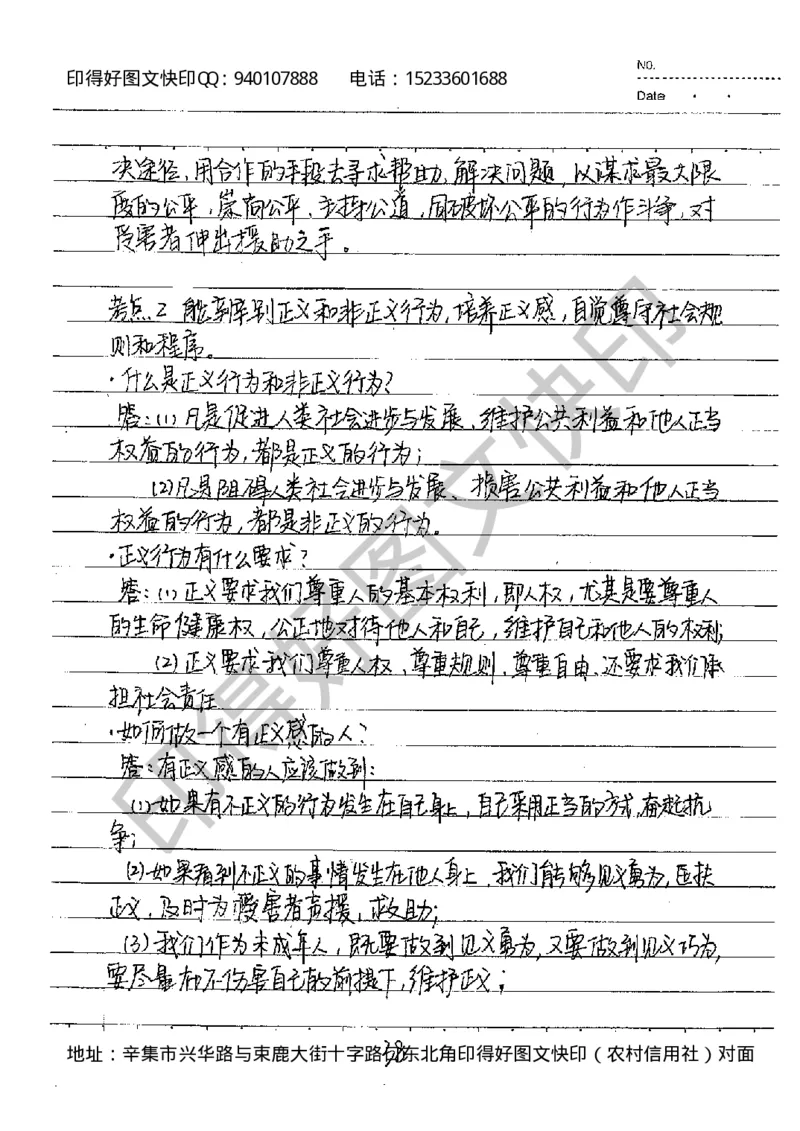 No.
印得好图文快印QQ：940107888 电话：15233601688
Date
决途径，用合作的手段去寻求帮助，解决问题，以谋求最大限
度的公平，崇尚公平、主持公道，同破坏公平的行为作斗争，对
受害者伸出援助之手。
考点2 能辨别正义和非正义行为，培养正义感，自觉遵守社会规
则和程序。
·什么是正义行为和非正义行为？
答：(1)凡是促进人类社会进步与发展、维护公共利益和他人正当
权益的行为，都是正义的行为；
(2)凡是阻碍人类社会进步与发展、损害公共利益和他人正当
权益的行为，都是非正义的行为。
·正义行为有什么要求？
答：(1)正义要求我们尊重人的基本权利，即人权，尤其是要尊重人
的生命健康权，公正地对待他人和自己，维护自己和他人的权利；
(2)正义要求我们尊重人权、尊重规则、尊重自由，还要求我们承
担社会责任
·如何做一个有正义感的人？
答：有正义感的人应该做到：
(1)如果有不正义的行为发生在自己身上，自己采用正当的方式，奋起抗
争；
(2)如果看到不正义的事情发生在他人身上，我们能够见义勇为，匡扶
正义，及时为受害者声援，救助；
(3)我们作为未成年人，既要做到见义勇为，又要做到见义巧为，
要尽量在不伤害自己的前提下，维护正义；
地址：辛集市兴华路与束鹿大街十字路口东北角印得好图文快印（农村信用社）对面
38
印得好图文快印